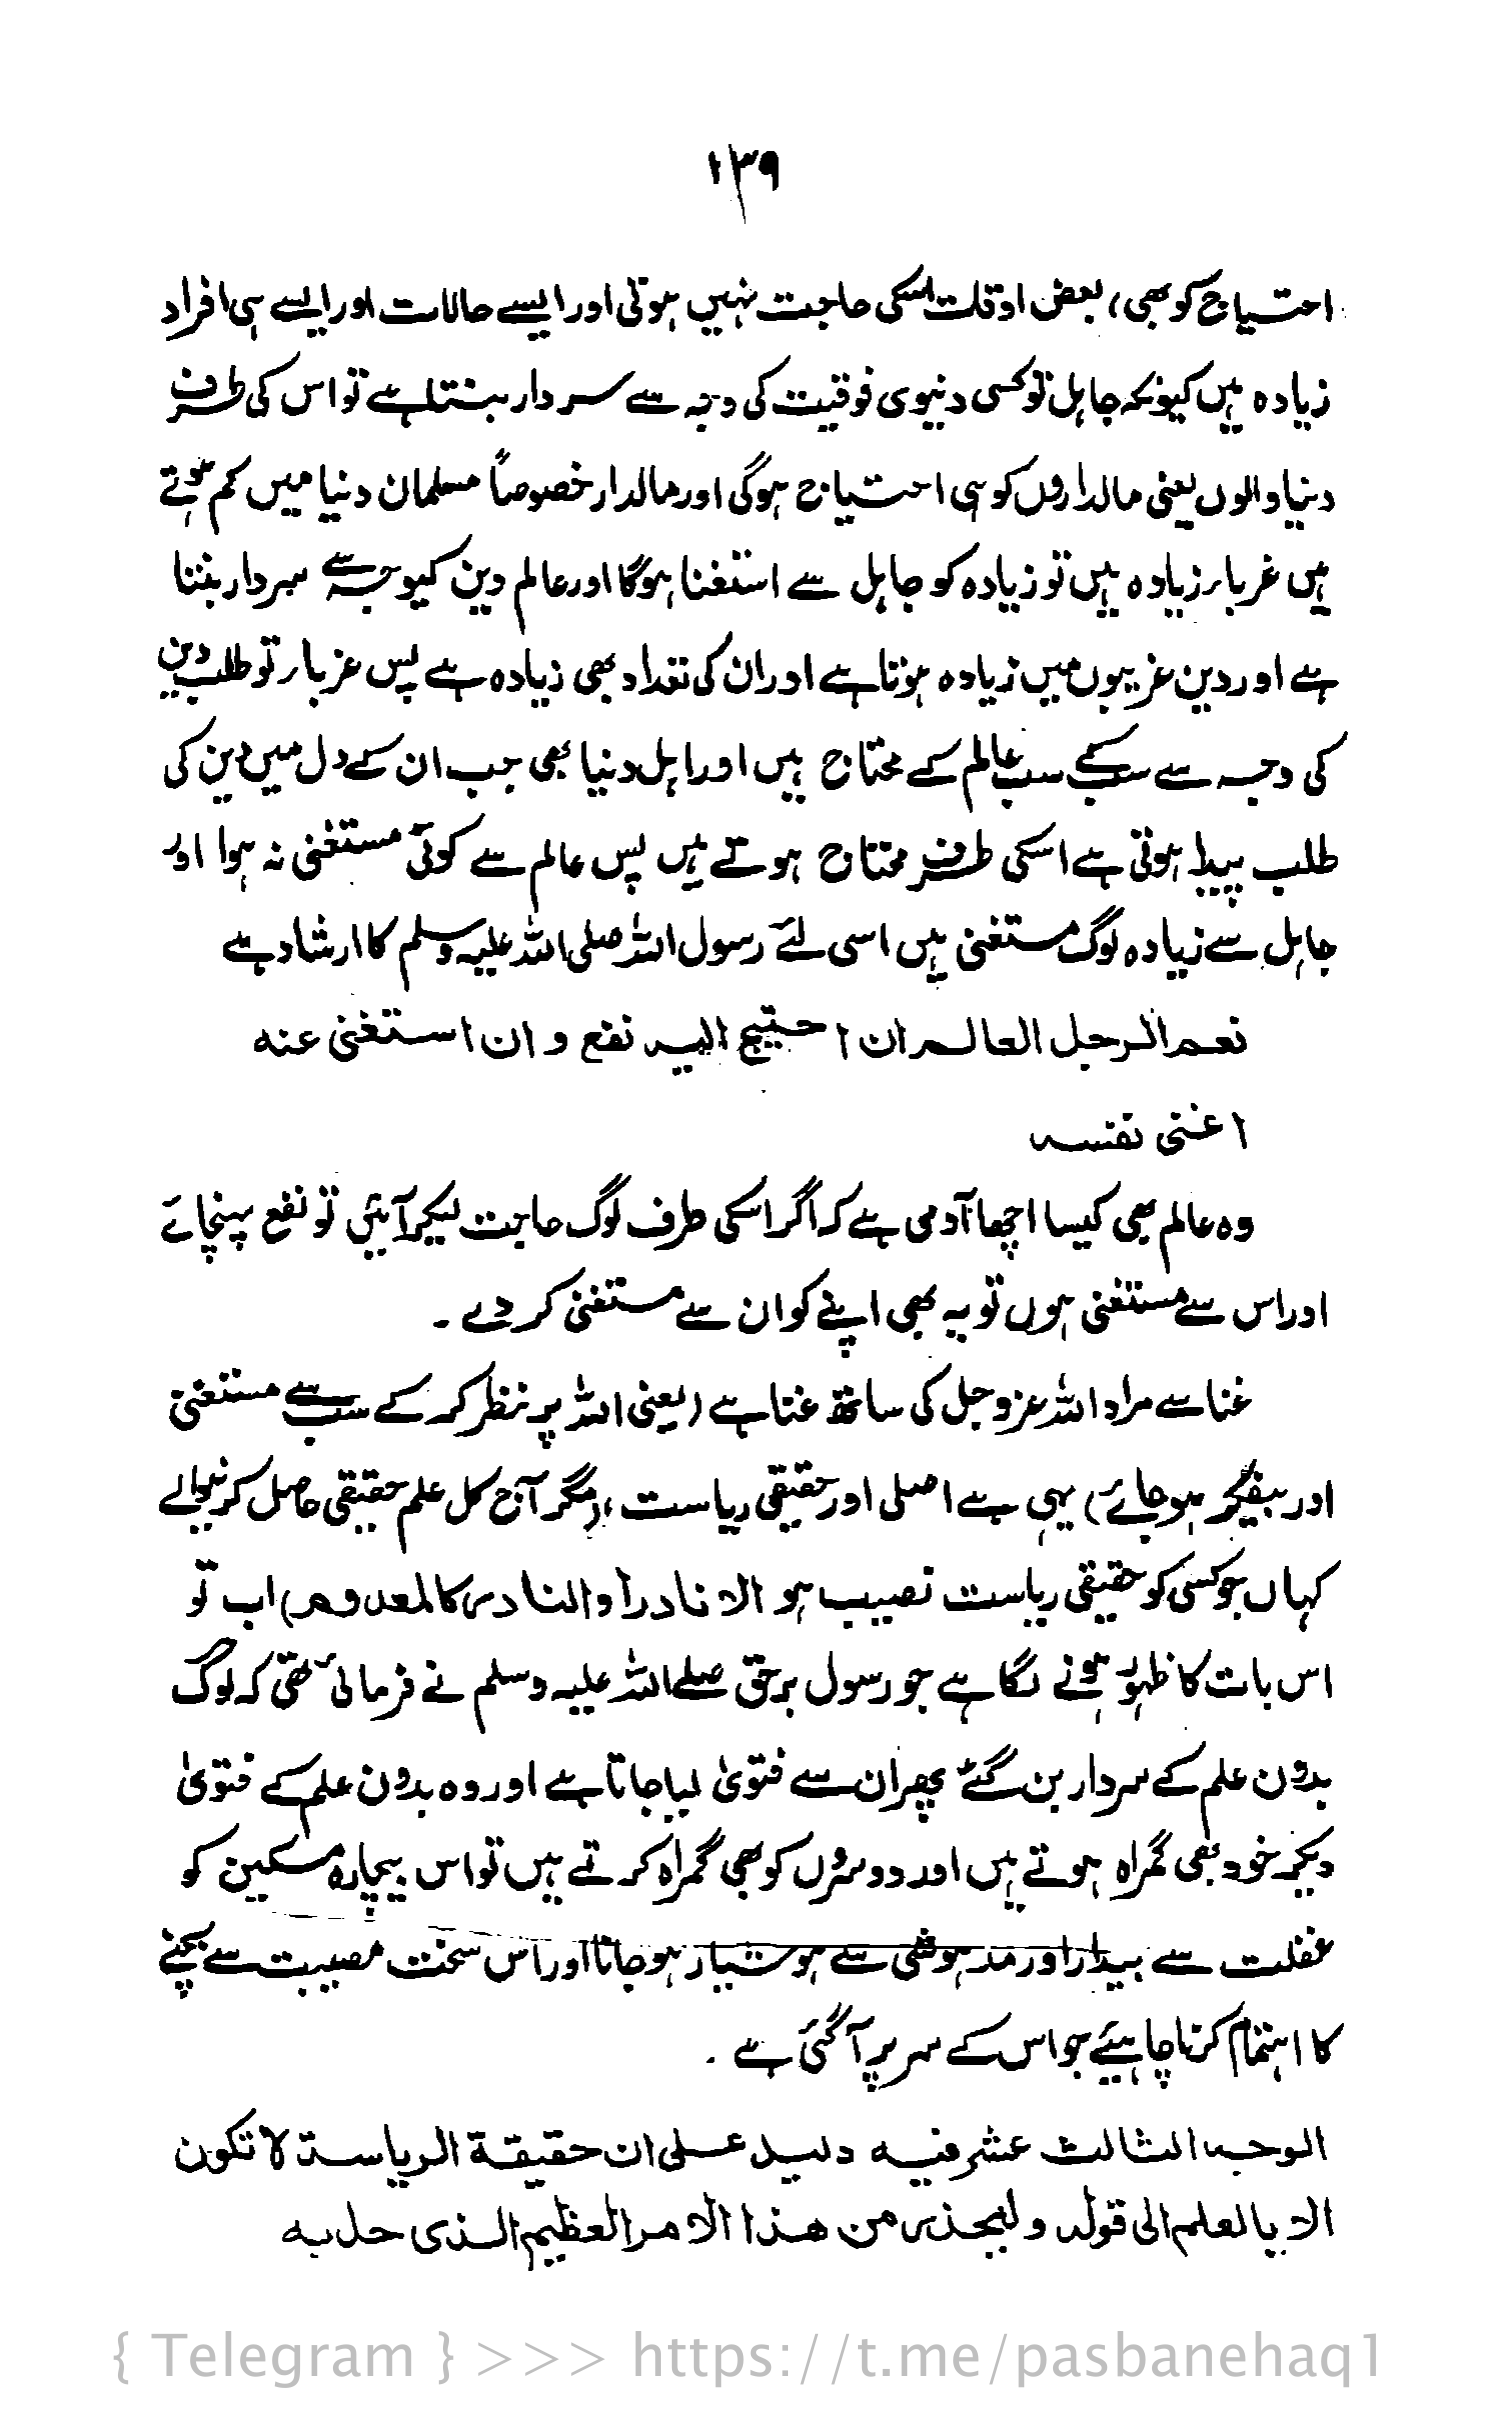 ۱۳۹
احتیاج کو بھی، بعض اوقات اسکی حاجت نہیں ہوتی اور ایسے حالات اور ایسے ہی افراد
زیادہ ہیں کیونکہ جاہل تو کسی دنیوی فوقیت کی وجہ سے سردار بنتا ہے تو اس کی طرف
دنیا والوں یعنی مالداروں کو ہی احتیاج ہوگی اور مالدار خصوصاً مسلمان دنیا میں کم ہوتے
ہیں غرباء زیادہ ہیں تو زیادہ کو جاہل سے استغنا ہوگا اور عالم دین کیوجہ سے سردار بنتا
ہے اور دین غریبوں میں زیادہ ہوتا ہے اور ان کی تعداد بھی زیادہ ہے پس غرباء تو طلب دین
کی وجہ سے سب کے سب عالم کے محتاج ہیں اور اہل دنیا بھی جب ان کے دل میں دین کی
طلب پیدا ہوتی ہے اسکی طرف محتاج ہوتے ہیں پس عالم سے کوئی مستغنی نہ ہوا اور
جاہل سے زیادہ لوگ مستغنی ہیں اسی لئے رسول اللہ صلی اللہ علیہ وسلم کا ارشاد ہے
نعم الرجل العالم ان احتیج الیہ نفع و ان استغنی عنہ
اغنی نفسہ
وہ عالم بھی کیسا اچھا آدمی ہے کہ اگر اسکی طرف لوگ حاجت لیکر آئیں تو نفع پہنچائے
اور اس سے مستغنی ہوں تو یہ بھی اپنے کو ان سے مستغنی کر دے ۔
غنا سے مراد اللہ عزوجل کی ساتھ غنا ہے (یعنی اللہ پر نظر کر کے سب سے مستغنی
اور بیفکر ہو جائے) یہی ہے اصلی اور حقیقی ریاست، (مگر آج کل علم حقیقی حاصل کرنیوالے
کہاں جو کسی کو حقیقی ریاست نصیب ہو الا نادراً والنادر کالمعدوم) اب تو
اس بات کا ظہور ہونے لگا ہے جو رسول برحق صلے اللہ علیہ وسلم نے فرمائی تھی کہ لوگ
بدون علم کے سردار بن گئے پھر ان سے فتویٰ لیا جاتا ہے اور وہ بدون علم کے فتویٰ
دیکر خود بھی گمراہ ہوتے ہیں اور دوسروں کو بھی گمراہ کرتے ہیں تو اس بیچارہ مسکین کو
غفلت سے بیدار اور مدہوشی سے ہوشیار ہو جانا اور اس سخت مصیبت سے بچنے
کا اہتمام کرنا چاہیئے جو اس کے سر پر آ گئی ہے ۔
الوجہ الثالث عشر فیہ دلیل علی ان حقیقة الریاسة لا تکون
الا بالعلم الی قولہ ولیحذر من هذا الامر العظیم الذی حل بہ
{ Telegram } >>> https://t.me/pasbanehaq1